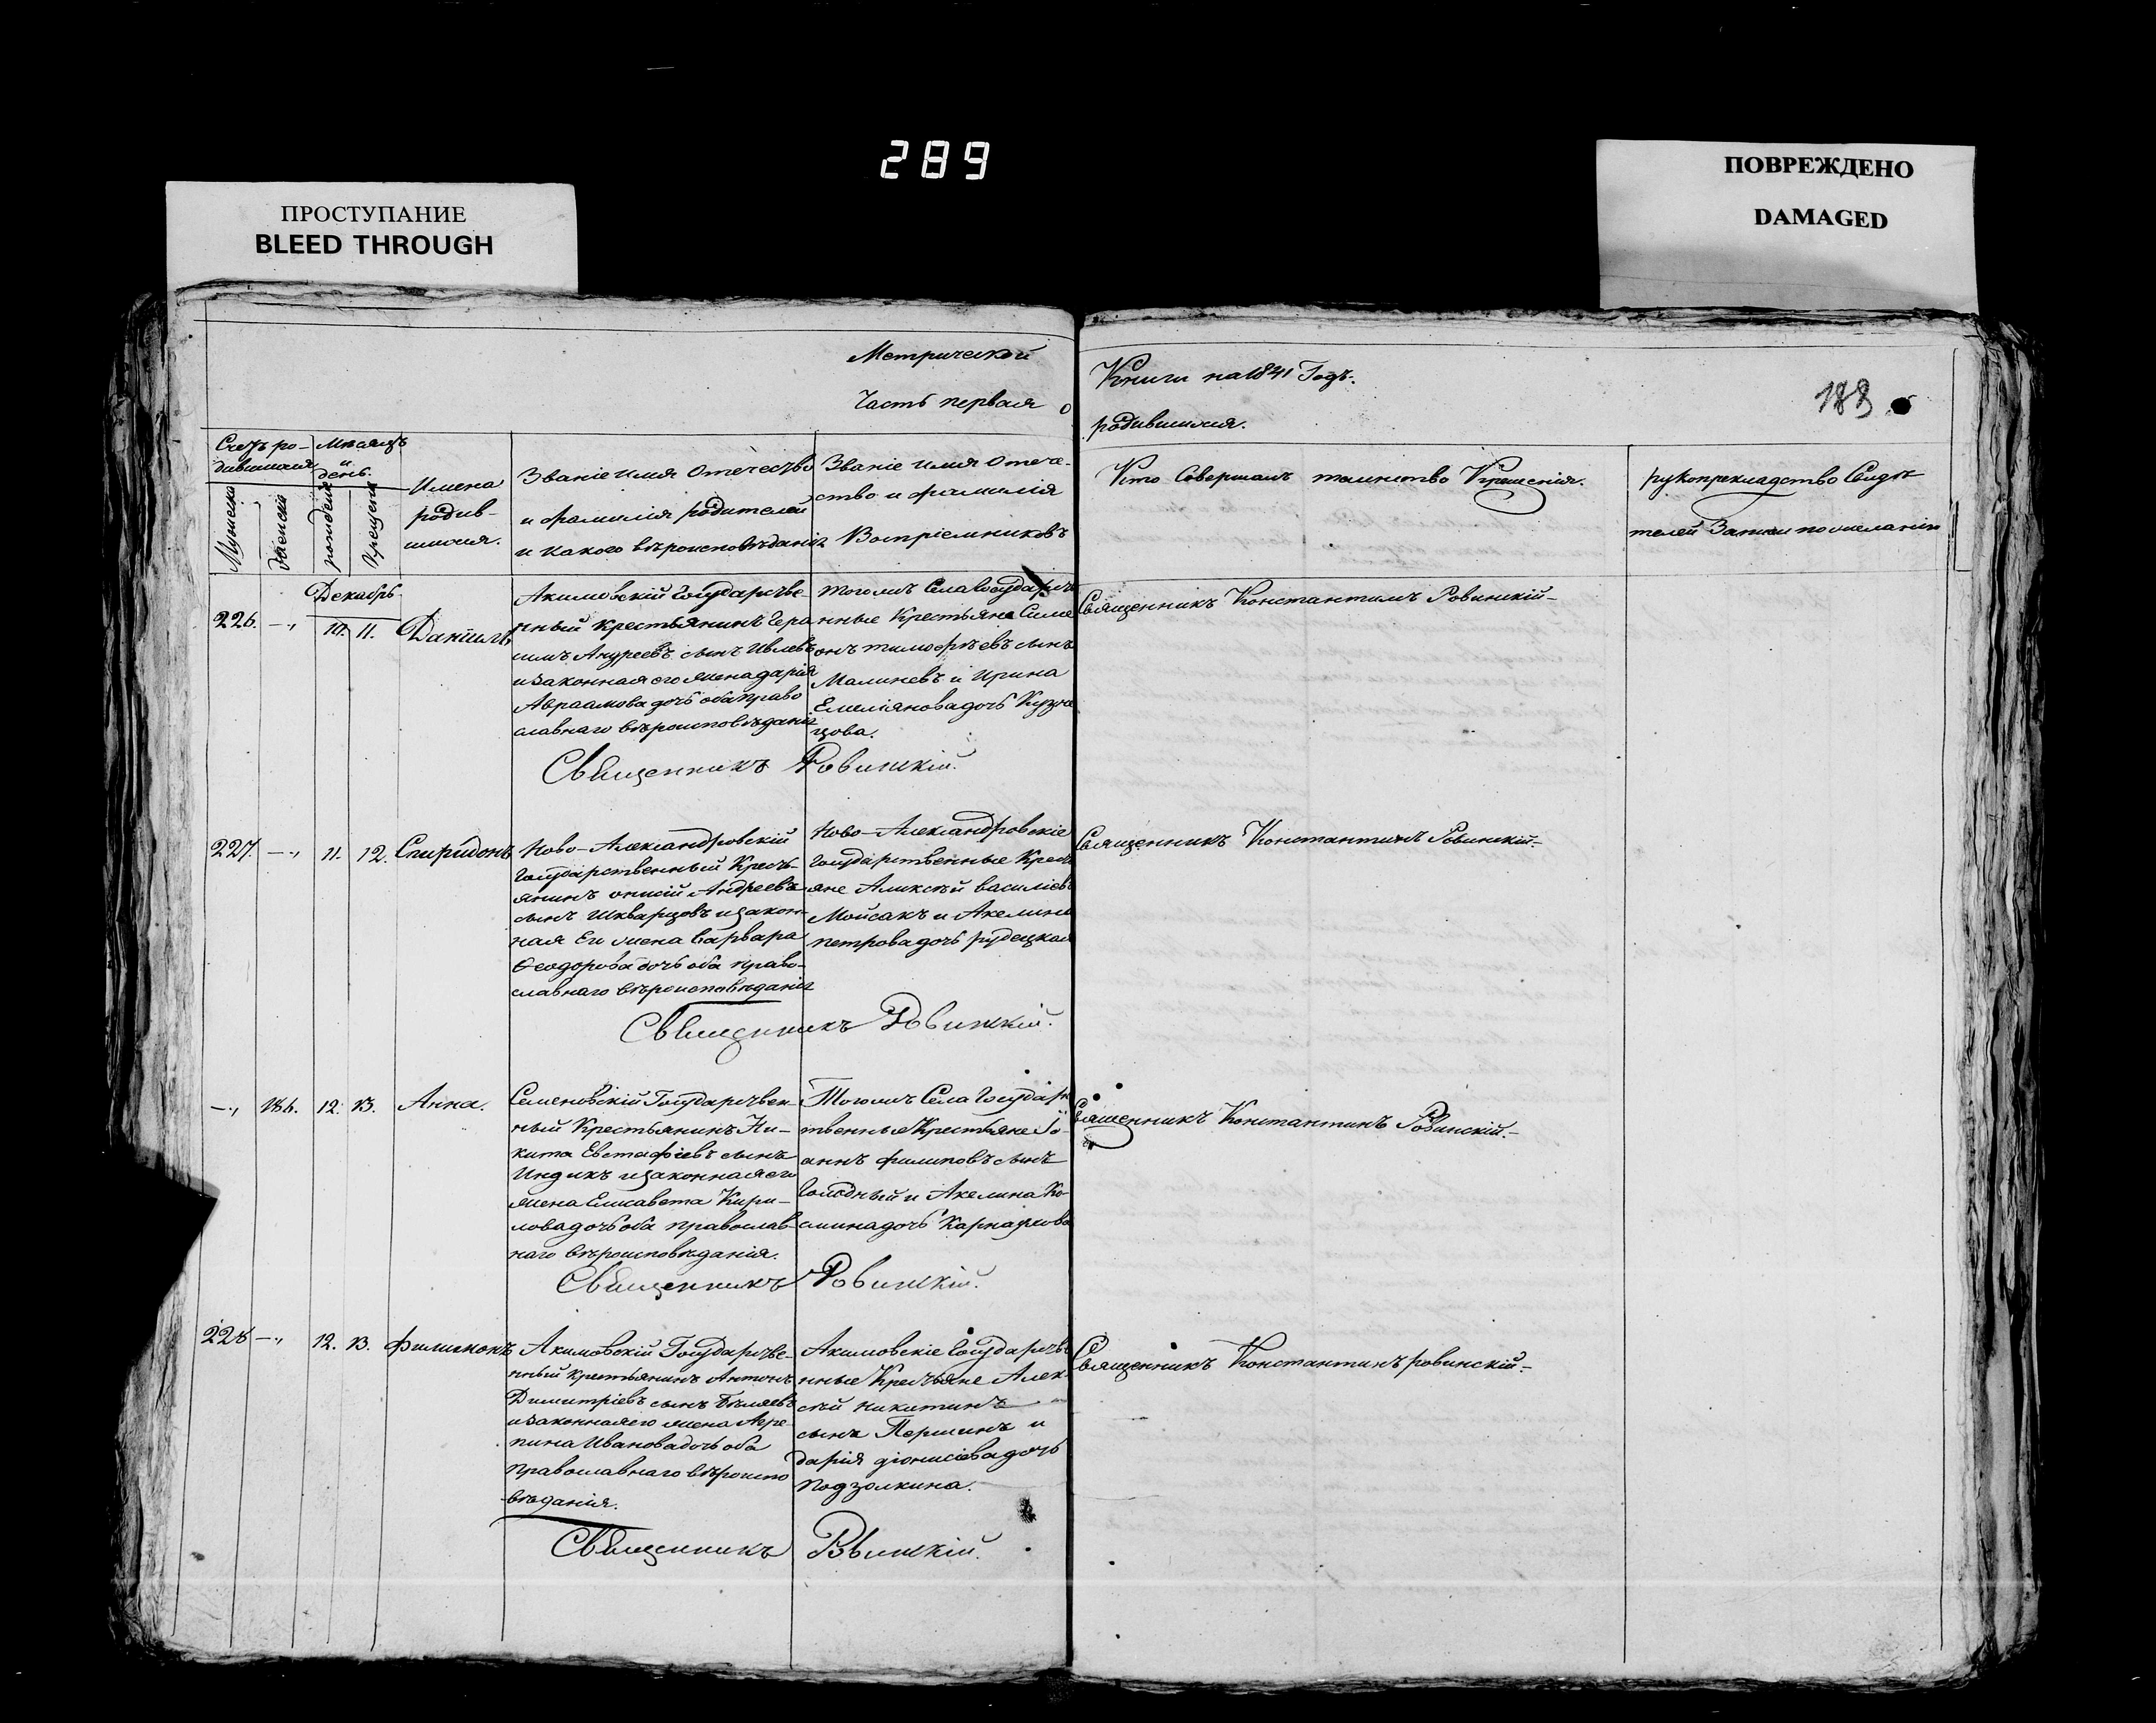 289
ПРОСТУПАНИЕ
BLEED THROUGH
ПОВРЕЖДЕНО
DAMAGED
Метрической
Часть первая о
Книги на 1841 Годъ.
родившихся.
188
Счетъ ро-
дившихся
Мѣсяцъ
и
день.
Мужеска
Женска
рожденія
Крещенія
Имена
родив-
шихся.
Званіе имя отечество
и фамилія родителей
и какого вѣроисповѣданія
Званіе имя отече-
ство и фамилія
Воспріемниковъ
Кто Совершалъ таинство Крещенія.
рукоприкладство Свидѣ
телей Записи по желанію
Декабрь
226. 10. 11. Даніилъ
Акимовскій Государстве-
нный крестьянинъ Гера
симъ Андреевъ сынъ Ивлевъ
и законная его жена дарія
Авраамова дочь оба право
славнаго вѣроисповѣданія
тогожъ Села Государст
нные Крестьяне Симе
онъ тимофѣевъ сынъ
Малиневъ и Ирина
Емеліянова дочь Кузне
цова.
Священникъ Константинъ Ровинскій
Священникъ Ровинскій.
227. 11. 12. Спиридонъ
Ново-Александровскій
Государственный Кресть-
янинъ онисій Андреевъ
сынъ Шкварцовъ и закон-
ная Его жена варвара
Ѳеодорова дочь оба право-
славнаго вѣроисповѣданія
Ново-Александровскіе
Государственные Кресть
яне Аликсѣй василіевъ
Мойсакъ и Акелина
петрова дочь рудецкая
Священникъ Константинъ Ровинскій.
Священникъ Ровинскій.
186. 12. 13. Анна.
Семеновскій Государствен-
ный Крестьянинъ Ни-
кита Евстафіевъ сынъ
Индикъ и законная его
жена Елисавета Кири-
лова дочь оба православ-
наго вѣроисповѣданія.
Тогожъ Села Государс
твенные Крестьяне Іо-
аннъ филиповъ сынъ
Голодный и Акелина Ко-
смина дочь
Священникъ Константинъ Ровинскій.
Священникъ Ровинскій.
228 12. 13. Филимонъ
Акимовскій Государстве-
нный крестьянинъ Антонъ
Димитріевъ сынъ Бѣляевъ
и законная его жена Агре-
пина Иванова дочь оба
Православнаго вѣроиспо
вѣданія.
Акимовскіе Государстве
нные Крестьяне Алек-
сѣй никитинъ
сынъ Першинъ и
дарія діонисіева дочь
Подзолкина.
Священникъ Константинъ ровинскій
Священникъ Ровинскій.